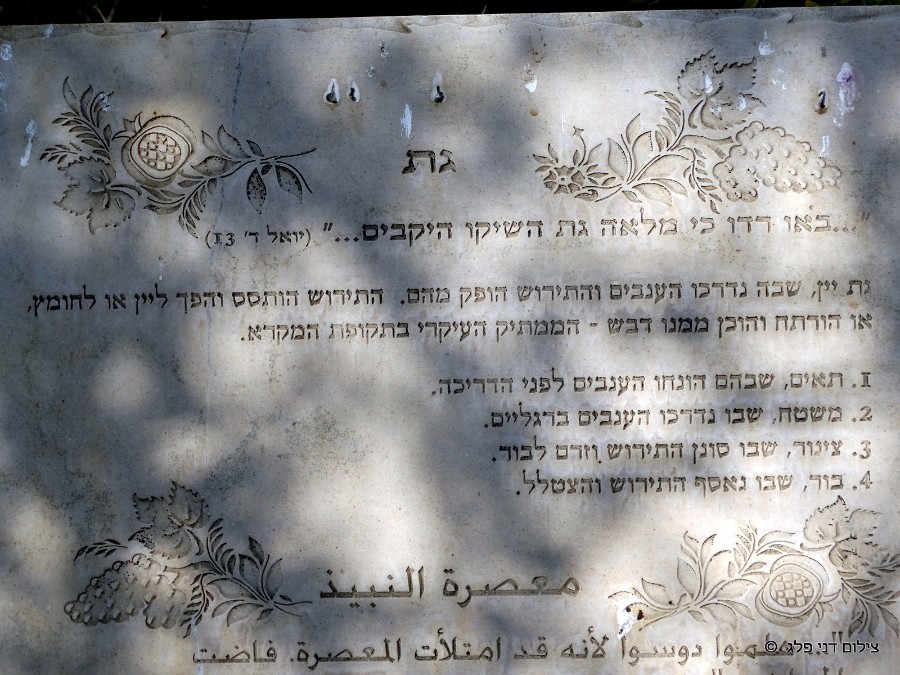 גת
"...באו רדו כי מלאה גת השיקו היקבים..." (יואל ד' 13)
גת יין, שבה נדרכו הענבים והתירוש הופק מהם. התירוש הותסס והפך ליין או לחומץ,
או הורתח והוכן ממנו דבש - הממתיק העיקרי בתקופת המקרא.
1. תאים, שבהם הונחו הענבים לפני הדריכה.
2. משטח, שבו נדרכו הענבים ברגליים.
3. צינור, שבו סונן התירוש וזרם לבור.
4. בור, שבו נאסף התירוש והצטלל.
معصرة النبيذ
دوسوا لأنه قد امتلأت المعصرة. فاضت
© צילום דני פלג